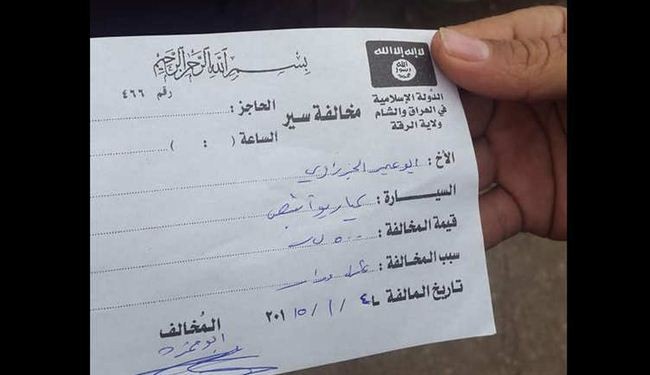 بسم الله الرحمن الرحيم
لا إله إلا الله
الله
رسول
محمد
الدولة الإسلامية
في العراق والشام
ولاية الرقة
رقم ٤٦٦
مخالفة سير
الحاجز :
الساعة ( : )
الأخ : ابو عمير الجزراوي
السيارة :
قيمة المخالفة : ٥٠٠ ل س
سبب المخالفة :
تاريخ المالفة ٤ / ١ / ٢٠١٥
المخالف
ابو حمزة